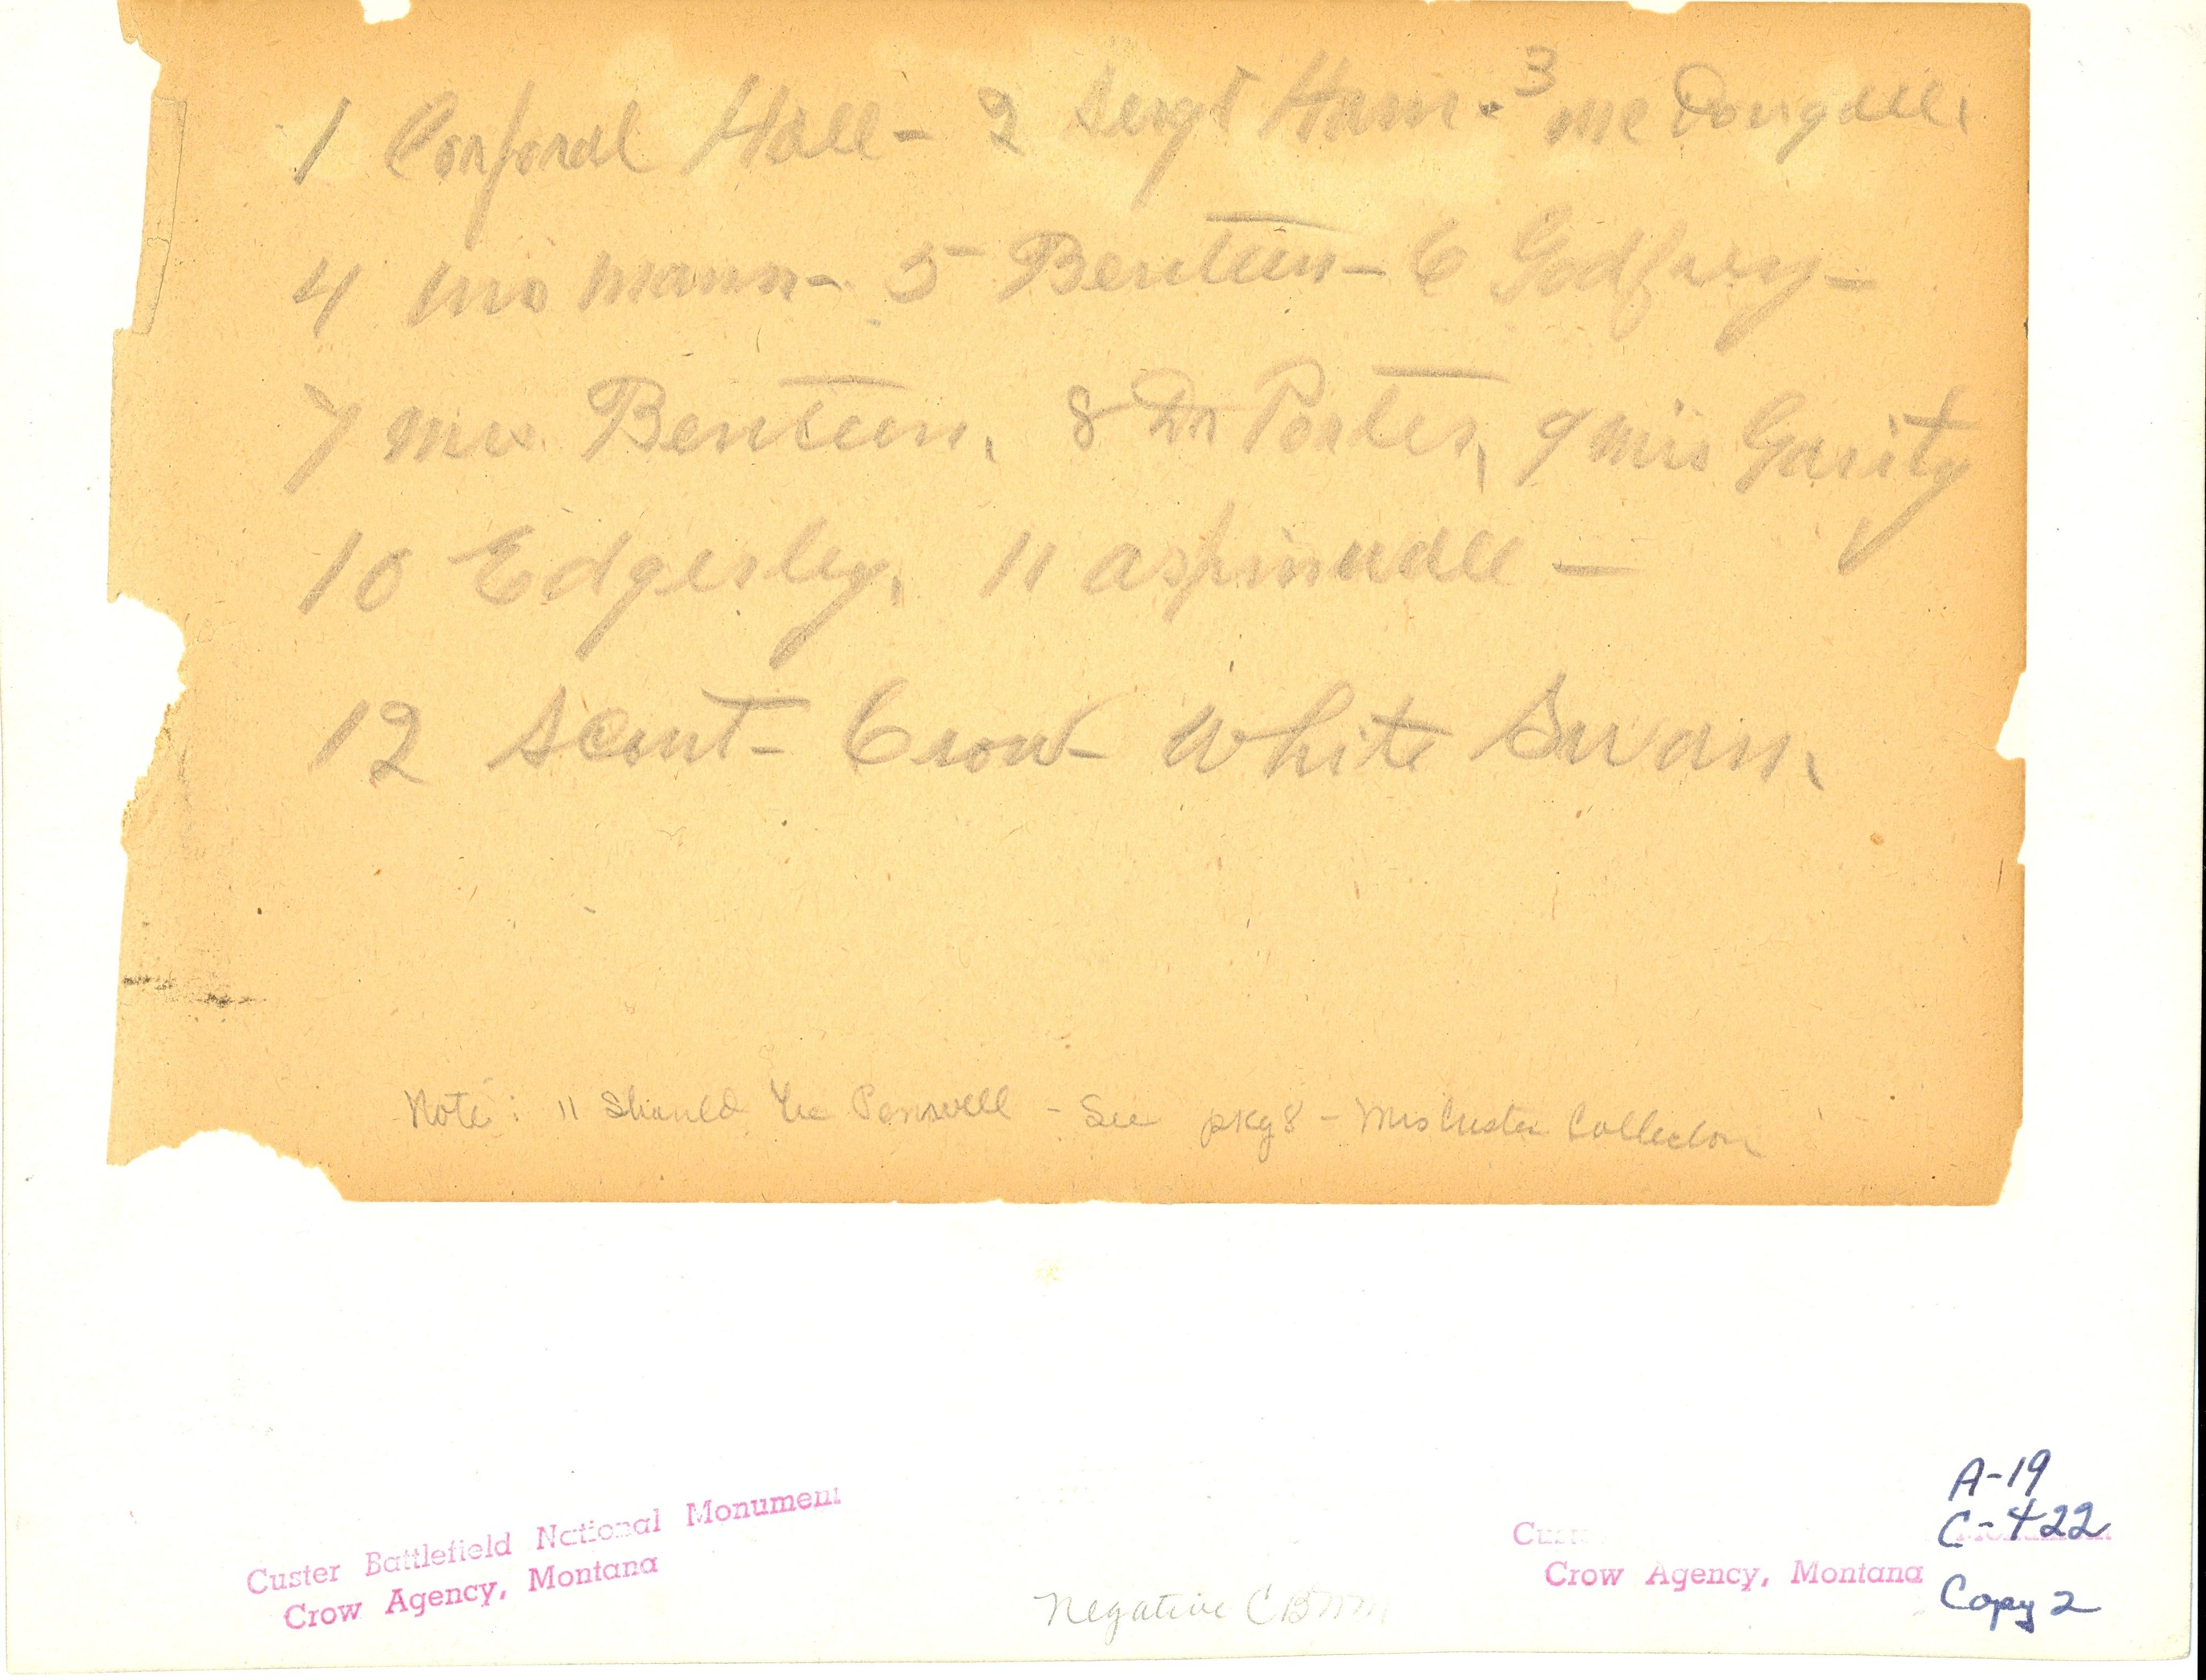 1 Corporal Hall - 2 Sergt Ham - 3 McDougall.
4 Mrs Mann - 5 Benteen - 6 Godfrey -
7 Mrs. Benteen, 8 Dr Porter, 9 Mrs Garity
10 Edgerley, 11 aspinwall —
12 Scout - Crow - White Swan.
Note: 11 should be Penwell - See pkg 8 - Mrs Custer Collection
Custer Battlefield National Monument
Crow Agency, Montana
Negative CBNM
Crow Agency, Montana
A-19
C-422
Copy 2